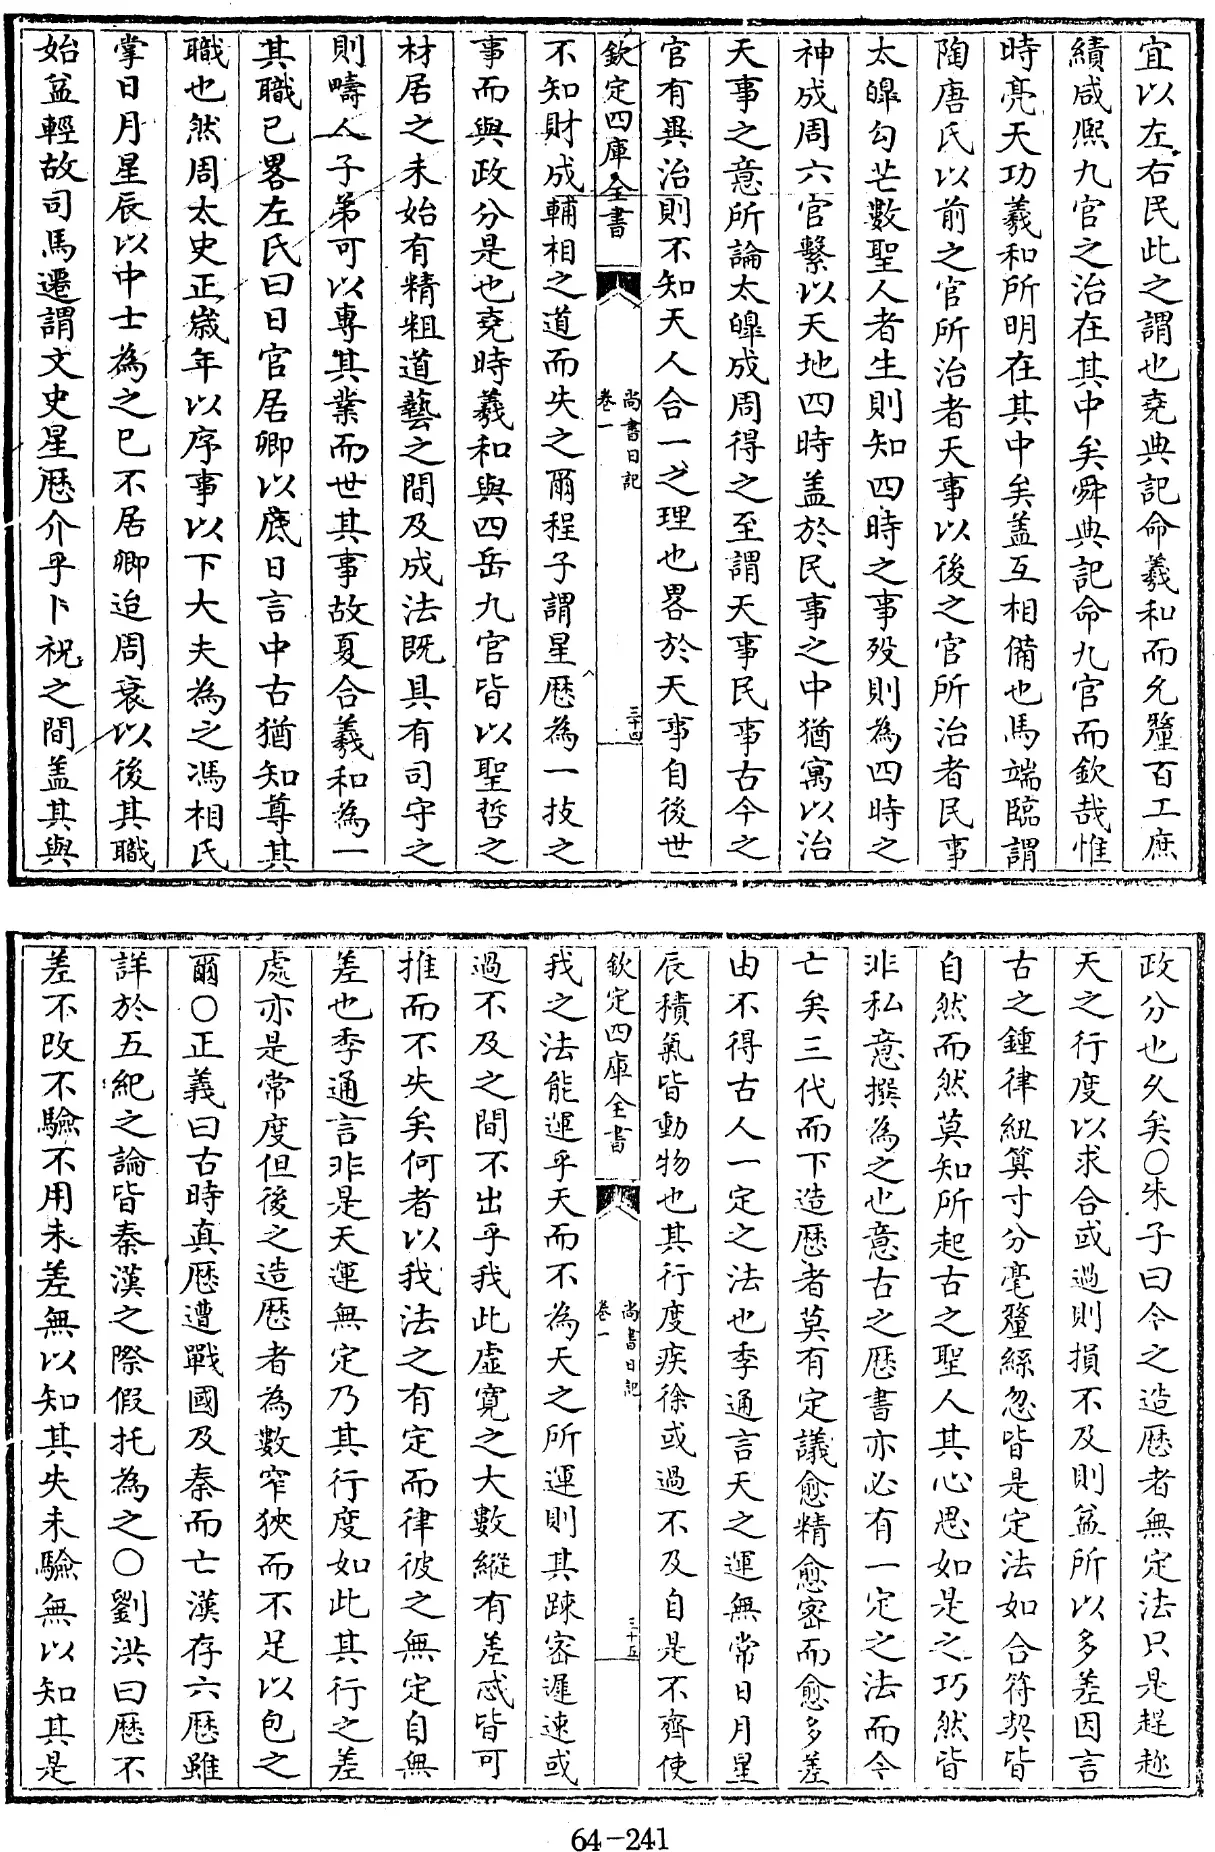 宜以左右民此之謂也堯典記命羲和而允釐百工庶
績咸熈九官之治在其中矣舜典記命九官而欽哉惟
時亮天功羲和所明在其中矣盖互相備也馬端臨謂
陶唐氏以前之官所治者天事以後之官所治者民事
太皥勾芒數聖人者生則知四時之事殁則為四時之
神成周六官繫以天地四時盖於民事之中猶寓以治
天事之意所論太皥成周得之至謂天事民事古今之
官有異治則不知天人合一之理也畧於天事自後世
欽定四庫全書
尚書日記
卷一
三十四
不知財成輔相之道而失之爾程子謂星厯為一技之
事而與政分是也堯時羲和與四岳九官皆以聖哲之
材居之未始有精粗道藝之間及成法既具有司守之
則疇人子弟可以專其業而世其事故夏合羲和為一
其職已畧左氏曰日官居卿以底日言中古猶知尊其
職也然周太史正嵗年以序事以下大夫為之馮相氏
掌日月星辰以中士為之已不居卿迨周衰以後其職
始益輕故司馬遷謂文史星厯介乎卜祝之間盖其與
政分也久矣○朱子曰今之造厯者無定法只是趕趂
天之行度以求合或過則損不及則益所以多差因言
古之鍾律紐算寸分毫釐絲忽皆是定法如合符契皆
自然而然莫知所起古之聖人其心思如是之巧然皆
非私意撰為之也意古之厯書亦必有一定之法而今
亡矣三代而下造厯者莫有定議愈精愈密而愈多差
由不得古人一定之法也季通言天之運無常日月星
辰積氣皆動物也其行度疾徐或過不及自是不齊使
欽定四庫全書
尚書日記
卷一
三十五
我之法能運乎天而不為天之所運則其踈宻遲速或
過不及之間不出乎我此虚寛之大數縱有差忒皆可
推而不失矣何者以我法之有定而律彼之無定自無
差也季通言非是天運無定乃其行度如此其行之差
處亦是常度但後之造厯者為數窄狹而不足以包之
爾○正義曰古時真厯遭戰國及秦而亡漢存六厯雖
詳於五紀之論皆秦漢之際假托為之○劉洪曰厯不
差不改不驗不用未差無以知其失未驗無以知其是
64-241